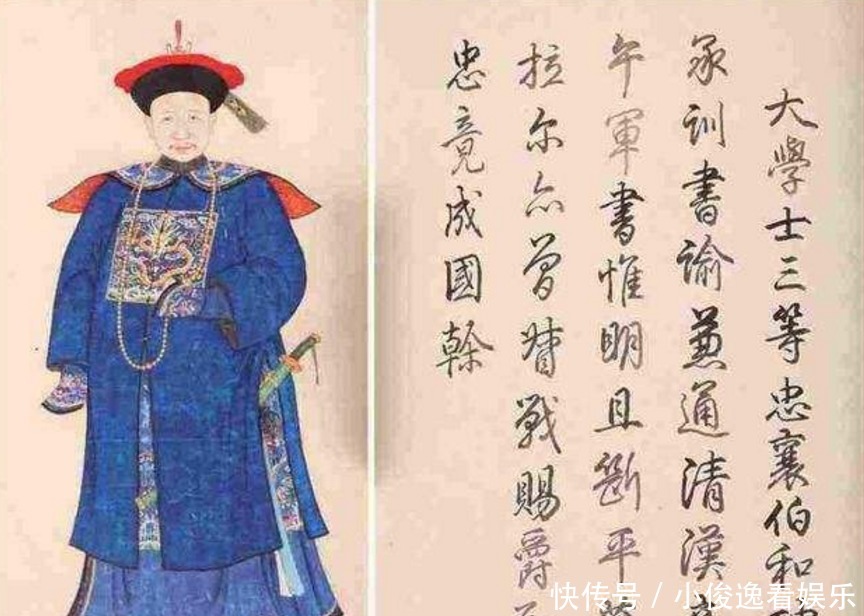 大學士三等忠襄伯和
承訓書諭兼通清漢
午軍書惟明且斷平
拉尔亦曾督戰賜爵
忠竟成國幹
快传号 / 小俊逸看娱乐